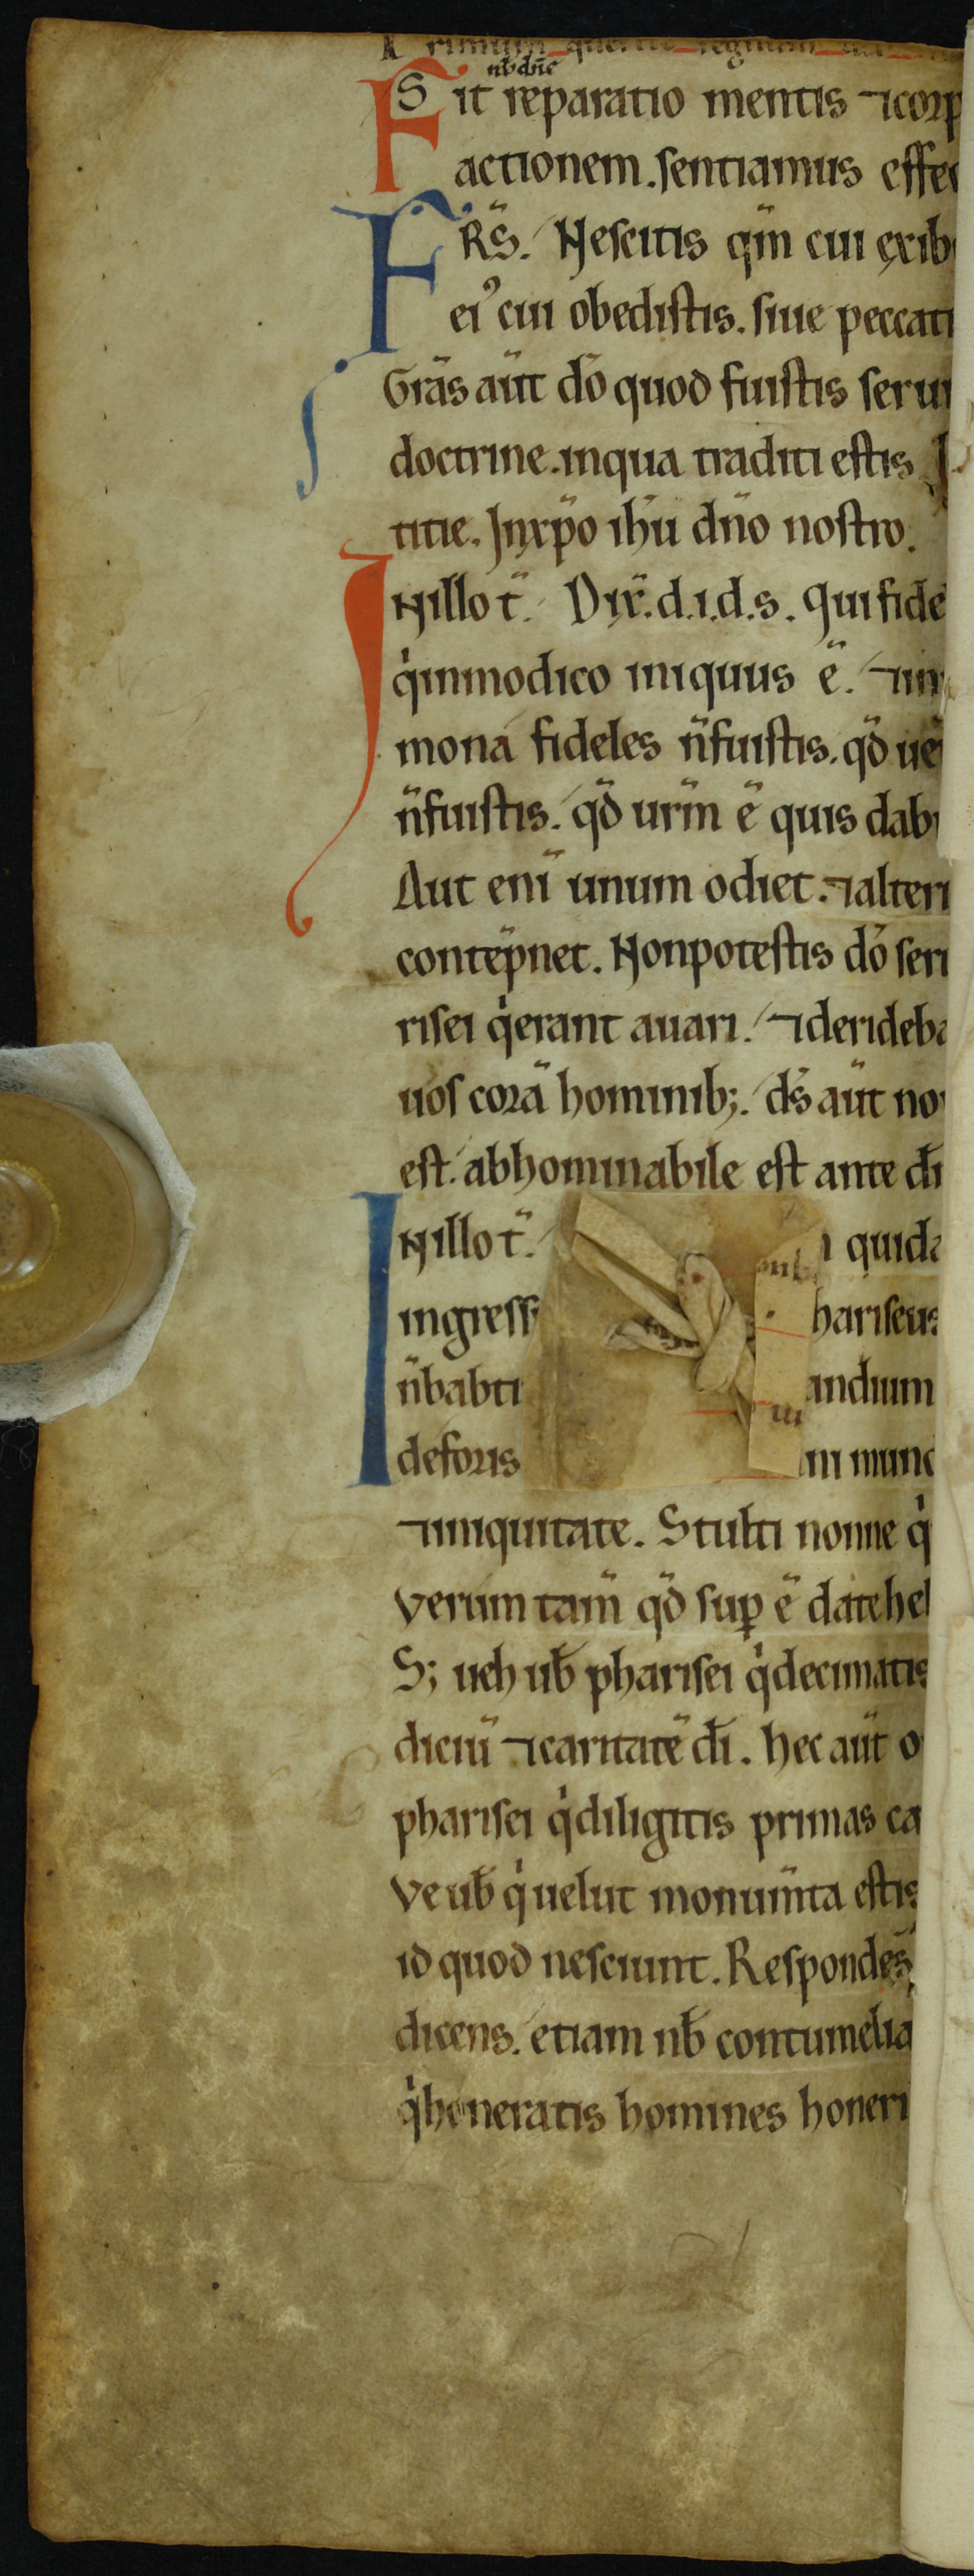 rimum querite regnum
nb̄ dñe
Sit reparatio mentis ⁊corp
actionem. sentiamus effec
FRS̄. Nescitis qm̄ cui exib
ei᾿ cui obedistis. siue peccati
Grās aūt dō quod fuistis serui
doctrine. inqua traditi estis. I
titie. Inxp̄o ih̄u dn̄o nostro.
INillo t̄. Dix̄. d.i.d.s. Qui fide
qͥinmodico iniquus ē. ⁊in
mona fideles n̄fuistis. qd̄ ue
n̄fuistis. qd̄ urm̄ ē quis dabi
Aut eni̅ unum odiet. ⁊alteri
contēpnet. Nonpotestis dō seru
risei qͥerant auari. ⁊derideba
uos corā hominib;. ds̄ aūt no
est. abhominabile est ante dī
INillo t̄. quida
ingress hariseus
n̄babti andium
deforis in mund
⁊iniquitate. Stulti nonne qͥ
Verum tam̄ qd̄ suꝑ ē date hel
S; ueh ub̄ pharisei qͥdecimatis
diciū ⁊caritatē dī. hec aūt o
pharisei qͥdiligitis primas ca
Ve ub̄ qͥuelut monum̄ta estis
id quod nesciunt. Respondēs
dicens. etiam nb̄ contumelia
qͥhoneratis homines honeri